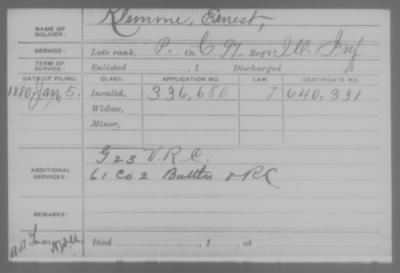 NAME OF SOLDIER: Klemme, Ernest,
SERVICE: Late rank, P. Co. C 97 Reg't Ill. Inf
TERM OF SERVICE: Enlisted , 1 Discharged
DATE OF FILING. CLASS. APPLICATION NO. LAW. CERTIFICATE NO.
1880, Jan 5. Invalid, 336,680 J 640,331
Widow,
Minor,
ADDITIONAL SERVICES: G 23 V.R.C.
61 Co 2 Battn V R C
REMARKS:
Died , 1 , at